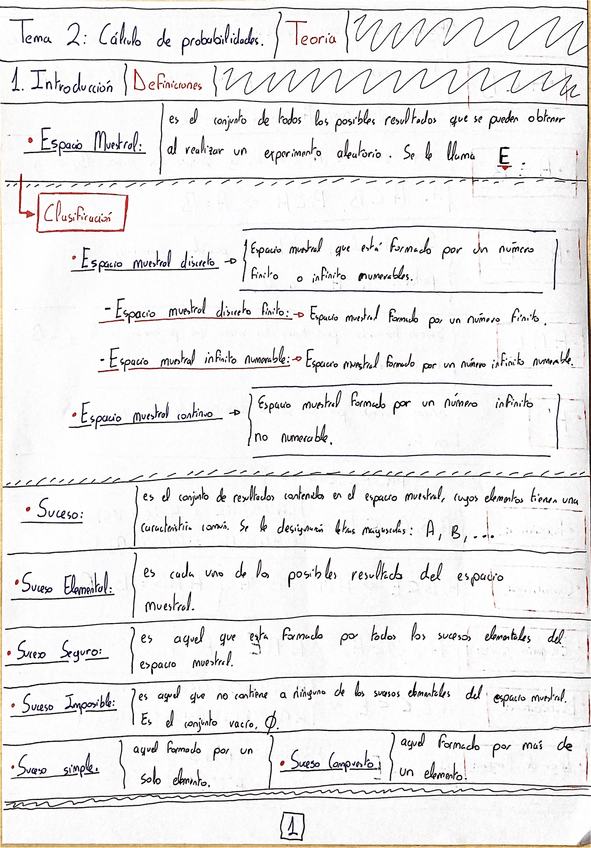 Tema 2: Cálculo de probabilidades. Teoría
1. Introducción Definiciones
• Espacio Muestral:
es el conjunto de todos los posibles resultados que se pueden obtener
al realizar un experimento aleatorio. Se le llama E.
Clasificación
• Espacio muestral discreto →
Espacio muestral que está formado por un número
finito o infinito numerables.
- Espacio muestral discreto finito: → Espacio muestral formado por un número finito.
- Espacio muestral infinito numerable: → Espacio muestral formado por un número infinito numerable.
• Espacio muestral continuo →
Espacio muestral formado por un número infinito
no numerable.
• Suceso:
es el conjunto de resultados contenido en el espacio muestral, cuyos elementos tienen una
característica común. Se le designará letras mayúsculas: A, B, ...
• Suceso Elemental:
es cada uno de los posibles resultado del espacio
muestral.
• Suceso Seguro:
es aquel que esta formado por todos los sucesos elementales del
espacio muestral.
• Suceso Imposible:
es aquel que no contiene a ninguno de los sucesos elementales del espacio muestral.
Es el conjunto vacío, Ø.
• Suceso simple:
aquel formado por un
solo elemento.
• Suceso Compuesto:
aquel formado por más de
un elemento.
1